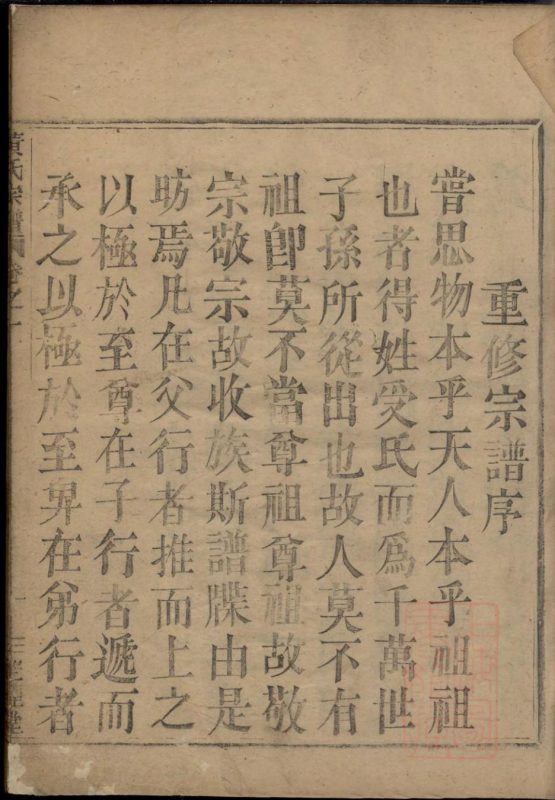 重修宗譜序
嘗思物本乎天人本乎祖祖
也者得姓受氏而爲千萬世
子孫所從出也故人莫不有
祖卽莫不當尊祖尊祖故敬
宗敬宗故收族斯譜牒由是
昉焉凡在父行者推而上之
以極於至尊在子行者遞而
承之以極於至昇在弟行者
黃氏宗譜 卷之一